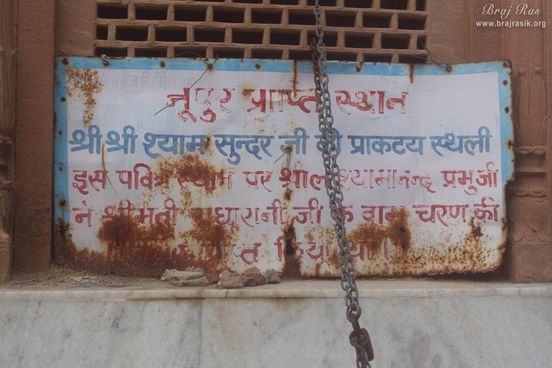 Braj Ras
www.brajrasik.org
नूपुर प्राप्ति स्थान
श्री श्री श्याम सुन्दर जी की प्राकटय स्थली
इस पवित्र स्थान पर श्रील श्यामानन्द प्रभुजी
ने श्रीमती राधारानी जी के वाम चरण की
किया था।